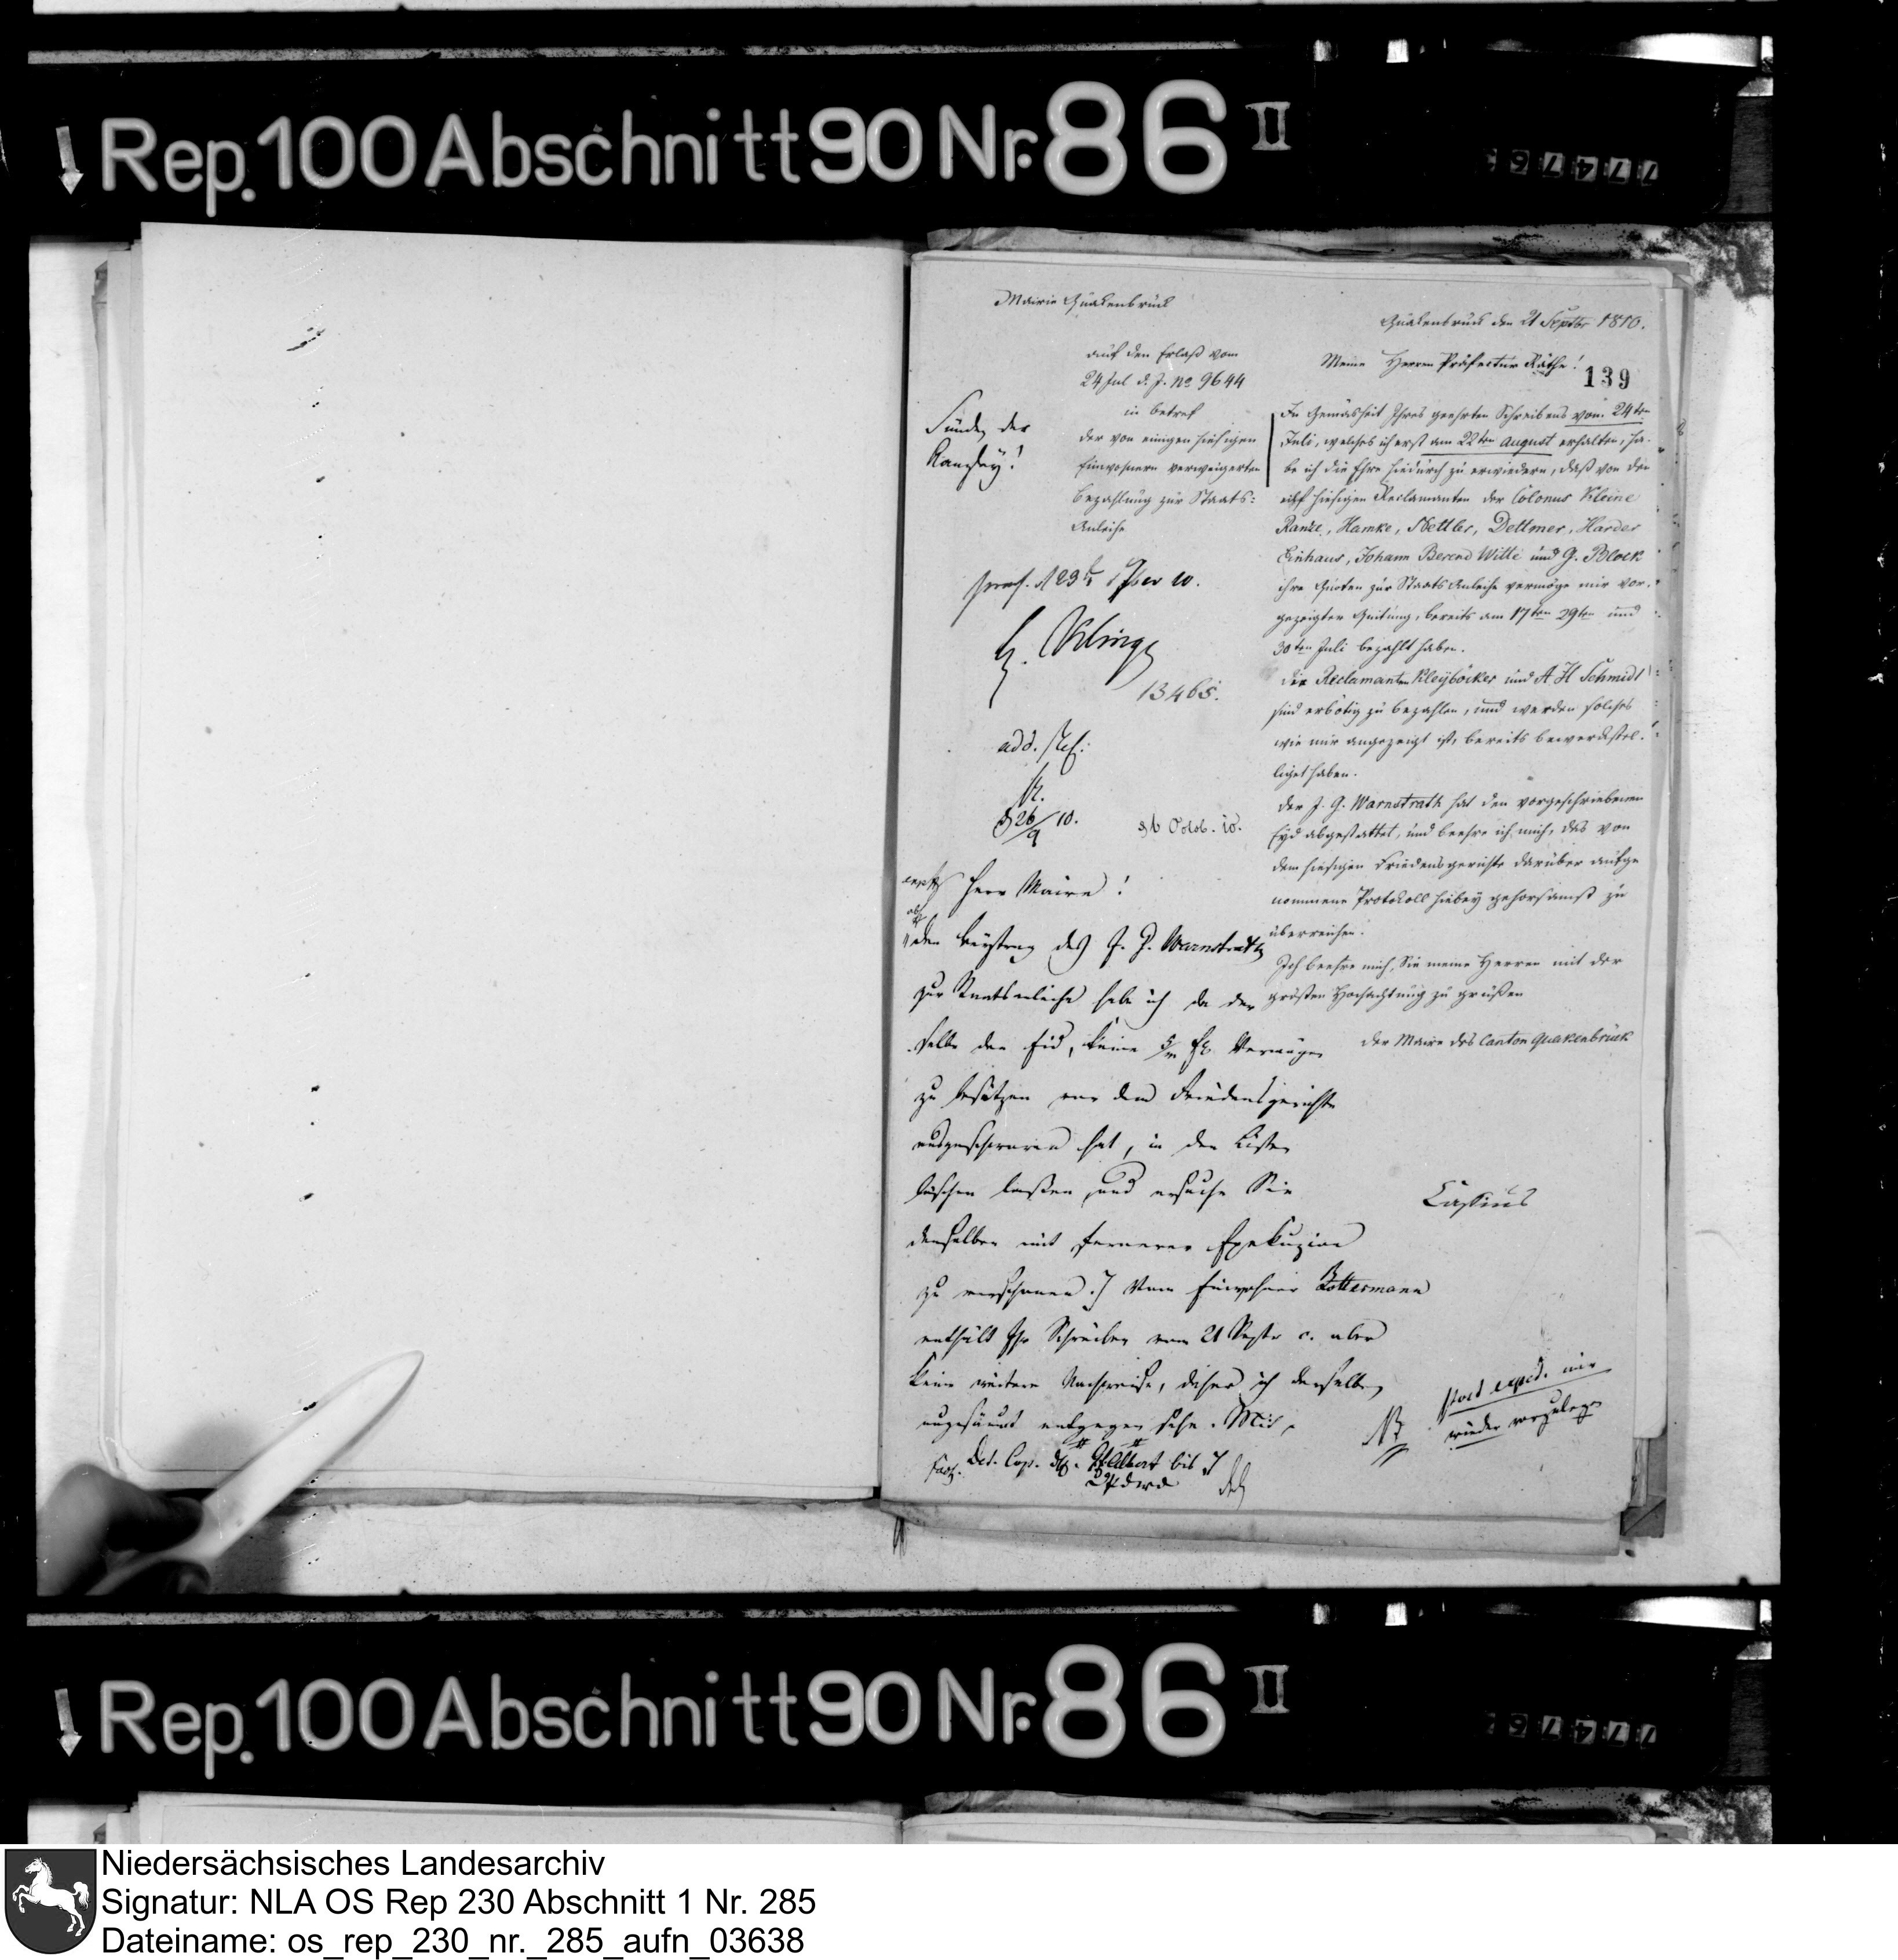 Rep. 100 Abschnitt 90 Nr. 86 II
Mairie Quakenbrück
Quakenbrück den 21 Septbr 1810.
auf den Erlaß vom
24 Jul d. J. No 9644
in betref
der von einigen hiesigen
Einwohnern verweigerten
Bezahlung zur Staats-
Anleihe
Meine Herren Präfectur Räthe!
139
In Gemäsheit Ihres geehrten Schreibens vom 24ten
Juli, welches ich erst am 22ten August erhalten, ha-
be ich die Ehre hiedurch zu erwiedern, daß von den
eilf hiesigen Reclamanten der Colonus Kleine
Ranze, Hamke, Dettmer, Harder
Einhaus, Johann Berend Witte und G. Block
ihre Quoten zur Staats Anleihe vermöge mir vor-
gezeigter Quitung, bereits am 17ten 29ten und
30ten Juli bezahlt haben.
Die Reclamanten Kleyböcker und A H Schmidt
sind erbötig zu bezahlen, und werden solches
wie mir angezeigt ist, bereits bewerkstel-
liget haben.
Der J. G. Warnstrath hat den vorgeschriebenen
Eyd abgestattet, und beehre ich mich, das von
dem hiesigen Friedensgerichte darüber aufge
nommene Protocoll hiebey gehorsamst zu
überreichen.
Ich beehre mich, Sie meine Herren mit der
grösten Hochachtung zu grüßen
der Maire des Canton Quakenbrück
Cassius
13465.
26/9 10.
Octob. 10.
Herr Maire!
den Beytrag des J. G. Warnstrath
zur Staatsanleihe habe ich da der
selbe den Eid, keine 5/m Fr. Vermögen
zu besitzen vor dem Friedensgerichte
ausgeschworen hat, in den Listen
löschen lassen und ersuche Sie
denselben mit fernerer Exekuzion
zu verschonen. Vom Einwohner Bottermann
enthält Ihr Schreiben vom 21 Septr c. aber
keine weitere Nachweise, daher ich derselben
ungesäumt entgegen sehe. Mit
post exped. mir
wieder vorzulegen
Rep. 100 Abschnitt 90 Nr. 86 II
Niedersächsisches Landesarchiv
Signatur: NLA OS Rep 230 Abschnitt 1 Nr. 285
Dateiname: os_rep_230_nr._285_aufn_03638